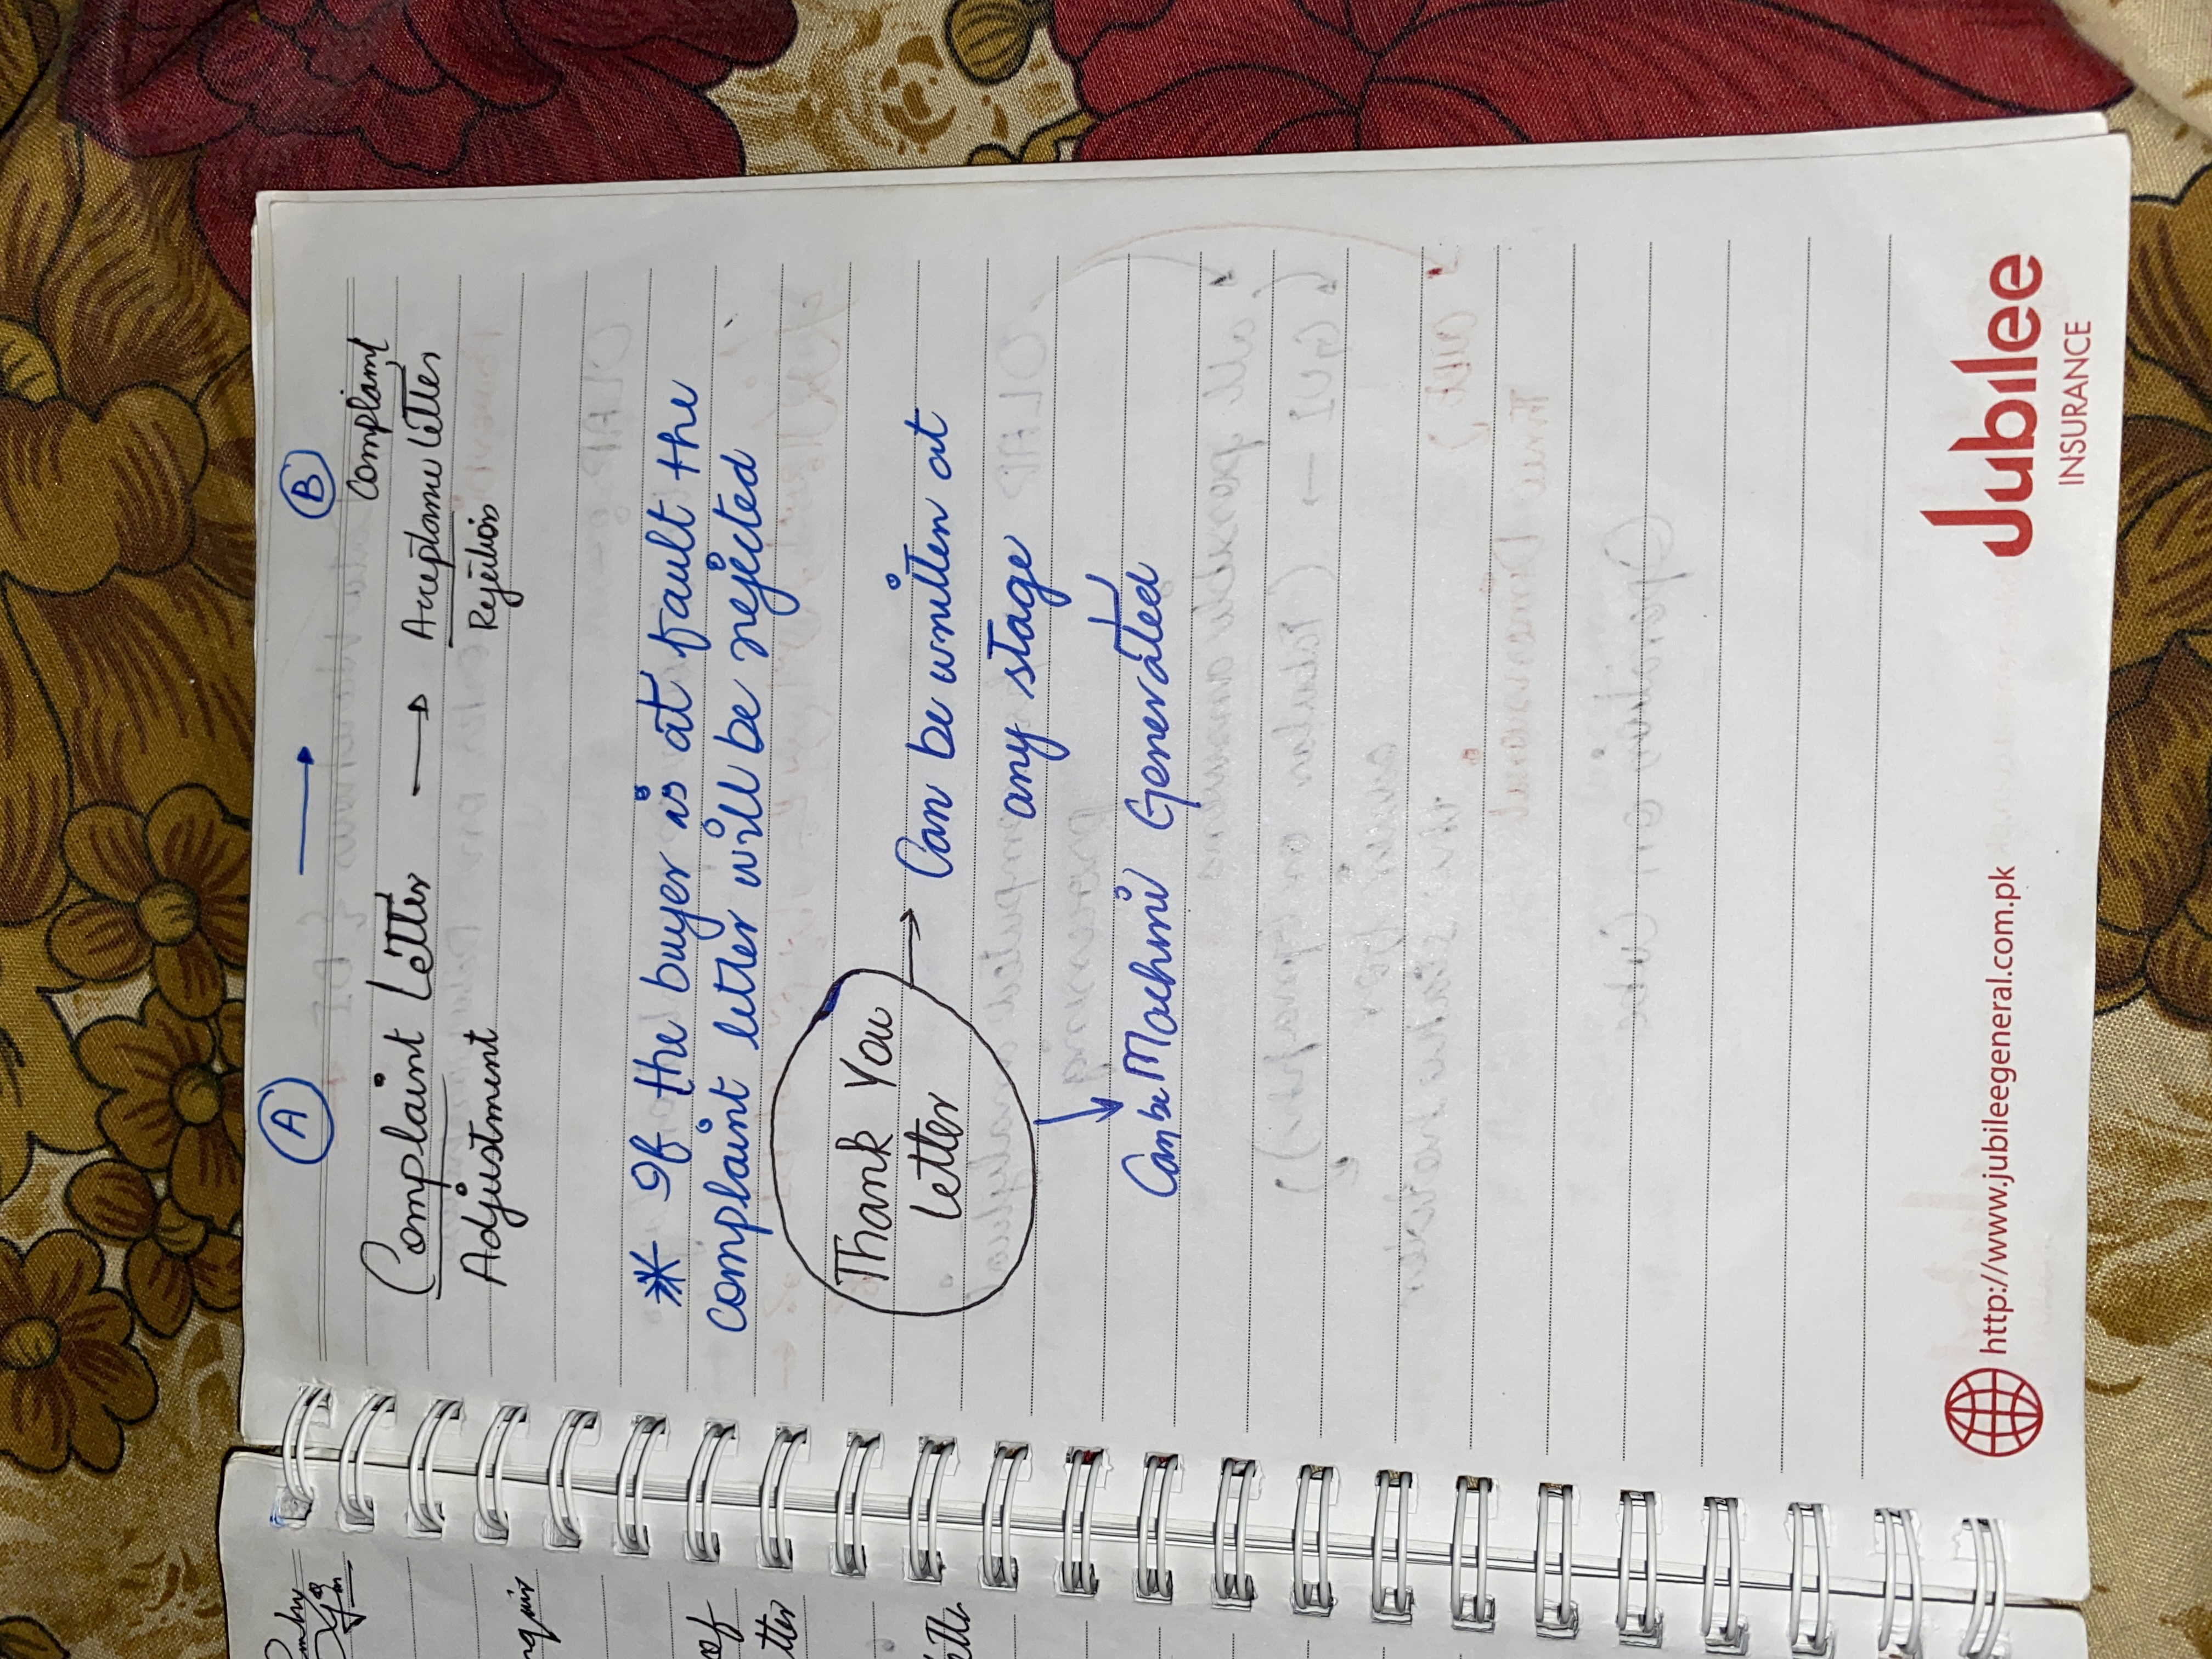 A → B
Complaint
Complaint Letter → Acceptance Letter
Adjustment Rejection
* If the buyer is at fault the
complaint letter will be rejected
Thank You
Letter → Can be written at
any stage
Can be Machine Generated
http://www.jubileegeneral.com.pk
Jubilee
INSURANCE
of